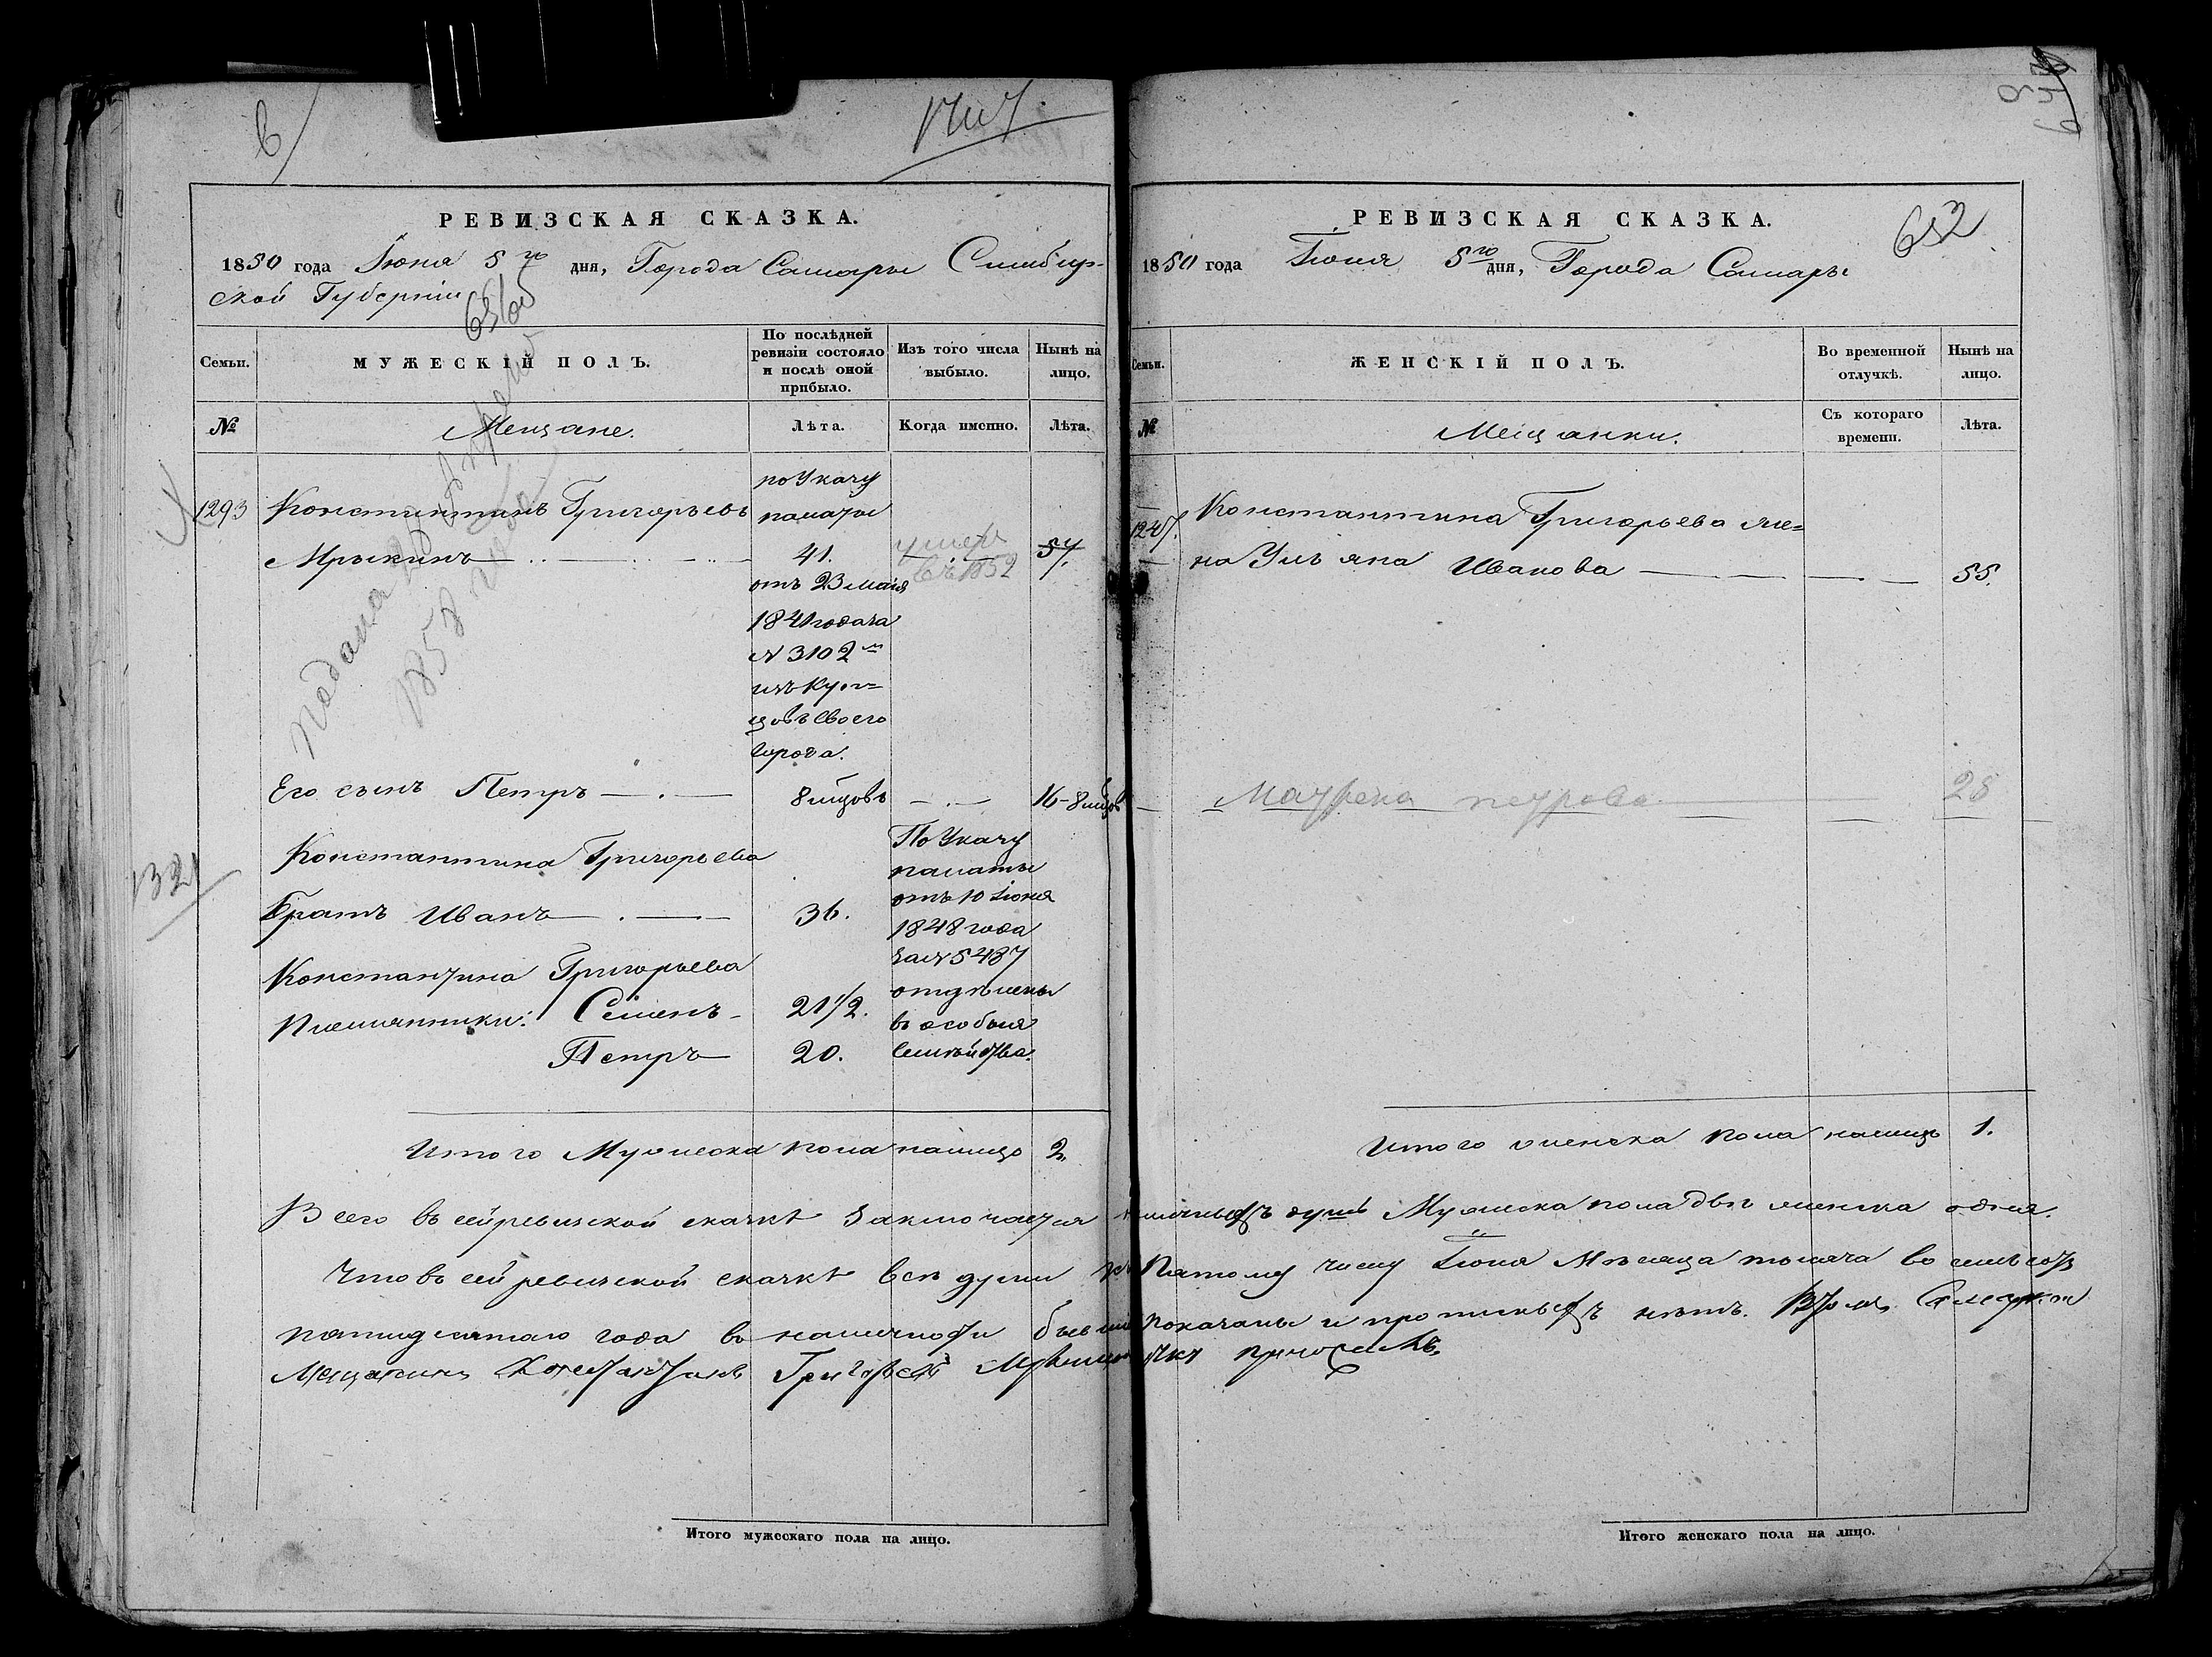 РЕВИЗСКАЯ СКАЗКА.
1850 года Іюня 5го дня, Города Самары Симбир-
ской Губерніи
Семьи.
МУЖЕСКІЙ ПОЛЪ.
По послѣдней ревизіи состояло и послѣ оной прибыло.
Изъ того числа выбыло.
Нынѣ на лицо.
№
Мещане.
Лѣта.
Когда именно.
Лѣта.
Подана
1858 года
1293
Константинъ Григорьевъ
Мрыкинъ
по Указу
палаты
41.
отъ 23 маія
1841 года за
№ 3102м
изъ Куп=
цовъ своего
города.
умеръ
въ 1852
57.
Его сынъ Петръ
8 мѣцовъ
16-8 мѣцов
1321
Константина Григорьева
Братъ Иванъ
36.
Константина Григорьева
Племянники: Семенъ
21 1/2.
Петръ
20.
По Указу
палаты
отъ 10 Іюня
1848 года
за № 5487
отделены
въ особыя
семѣйства.
Итого Мужеска пола налицо 2
РЕВИЗСКАЯ СКАЗКА.
652
1850 года Іюня 5го дня, Города Самары
Семьи.
ЖЕНСКІЙ ПОЛЪ.
Во временной отлучкѣ.
Нынѣ на лицо.
№
Мещанки.
Съ котораго времени.
Лѣта.
1247.
Константина Григорьева же=
на Ульяна Иванова
55.
Мавфена петрова
28
Итого женска пола налицо 1.
Всего въ сей ревизской сказкѣ заключается наличныхъ душъ Мужеска пола двѣ женска одна.
Что въ сей ревизской сказкѣ всѣ души къ Пятому числу Іюня Мѣсяца тысяча восемьсотъ
пятидесятаго года въ наличности бывшія показаны и прописныхъ нѣтъ. Въ томъ Самарской
Мещанинъ Константинъ Григорьевъ Мрыкинъ руку приложилъ
Итого мужескаго пола на лицо.
Итого женскаго пола на лицо.